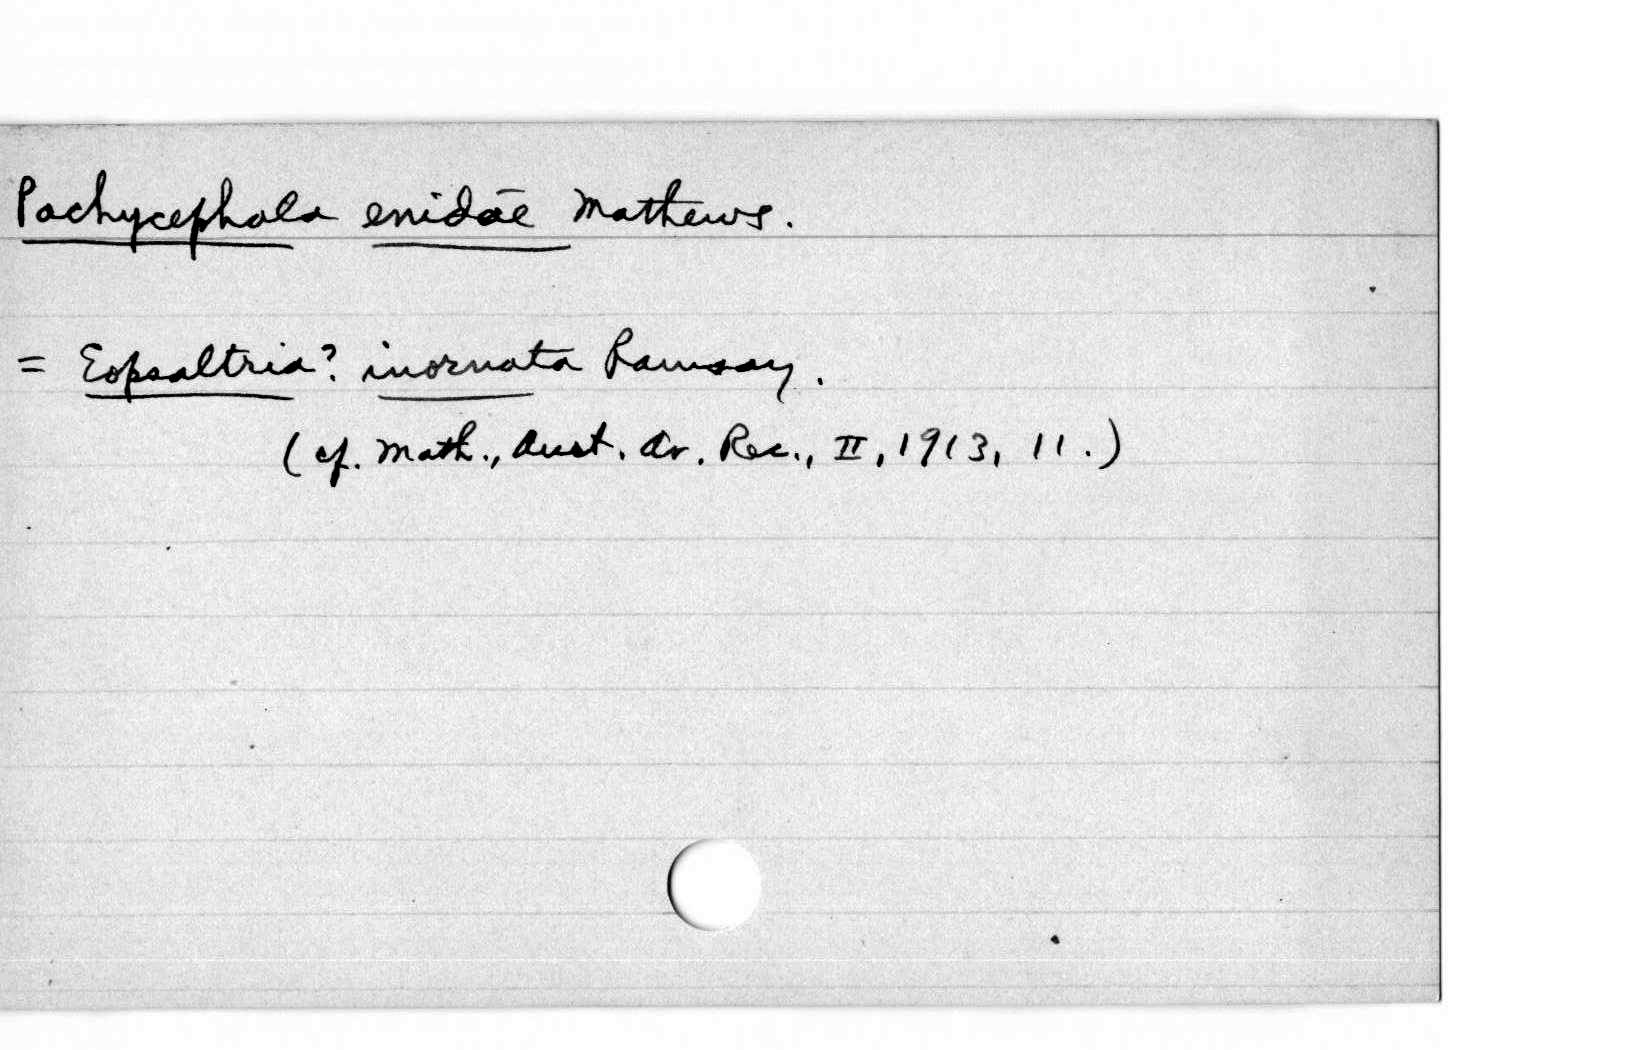 Pachycephala enidae Mathews.
= Eopsaltria? inornata Ramsay.
(cf. Math., Aust. Av. Rec., II, 1913, 11.)